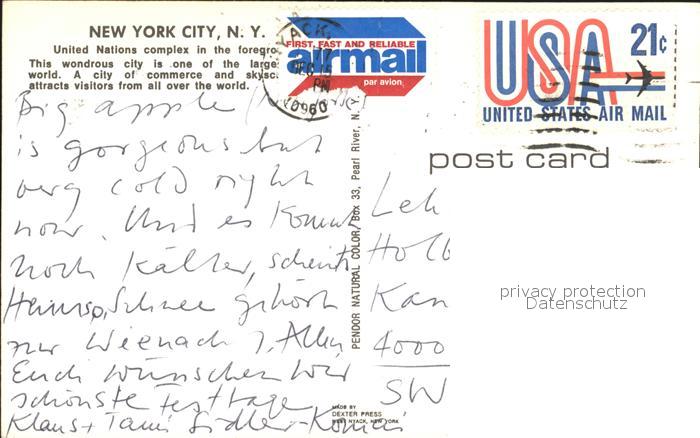 NEW YORK CITY, N. Y.
United Nations complex in the foregro
This wondrous city is one of the large
world. A city of commerce and skysc
attracts visitors from all over the world.
FIRST, FAST AND RELIABLE
airmail
par avion
NYACK, N.Y.
DEC 15
PM
10960
USA 21¢
UNITED STATES AIR MAIL
post card
Big apple
is gorgeous but
very cold right
now. Und es kommt
noch kälter, scheints
Schnee gehört
zur Wienacht
Euch wünschen wir
schönste Festtage
Klaus + Tami Sidler-
PENDOR NATURAL COLOR, Box 33, Pearl River, N. Y.
MADE BY
DEXTER PRESS
WEST NYACK, NEW YORK
Leh
Holb
Kan
4000
SW
privacy protection
Datenschutz